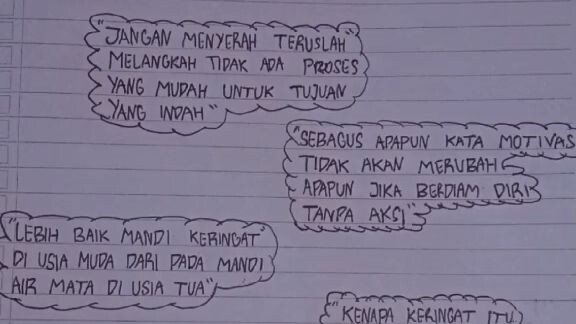 "JANGAN MENYERAH TERUSLAH
MELANGKAH TIDAK ADA PROSES
YANG MUDAH UNTUK TUJUAN
YANG INDAH"
"SEBAGUS APAPUN KATA MOTIVAS
TIDAK AKAN MERUBAH
APAPUN JIKA BERDIAM DIRI
TANPA AKSI"
"LEBIH BAIK MANDI KERINGAT
DI USIA MUDA DARI PADA MANDI
AIR MATA DI USIA TUA"
"KENAPA KERINGAT ITU